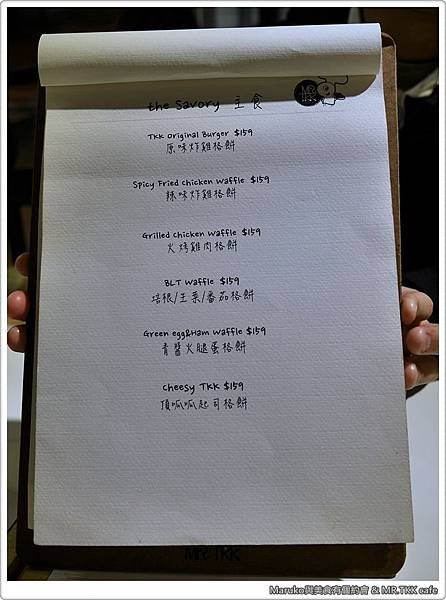 the Savory 主食
TKK Original Burger $159
原味炸雞格餅
Spicy Fried Chicken Waffle $159
辣味炸雞格餅
Grilled Chicken Waffle $159
火烤雞肉格餅
BLT Waffle $159
培根/生菜/番茄格餅
Green egg&Ham Waffle $159
青醬火腿蛋格餅
Cheesy TKK $159
頂呱呱起司格餅
MR.TKK
Maruko與美食有個約會 & MR.TKK cafe